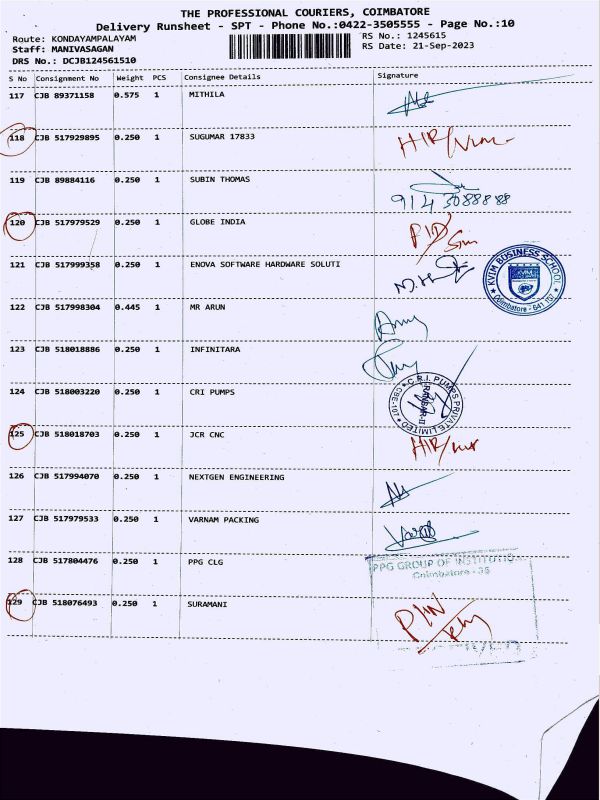 THE PROFESSIONAL COURIERS, COIMBATORE
Delivery Runsheet - SPT - Phone No.:0422-3505555 - Page No.:10
Route: KONDAYAMPALAYAM RS No.: 1245615
Staff: MANIVASAGAN RS Date: 21-Sep-2023
DRS No.: DCJB124561510
S No Consignment No Weight PCS Consignee Details Signature
117 CJB 89371158 0.575 1 MITHILA
118 CJB 517929895 0.250 1 SUGUMAR 17833
119 CJB 89884116 0.250 1 SUBIN THOMAS
9143088888
120 CJB 517979529 0.250 1 GLOBE INDIA
121 CJB 517999358 0.250 1 ENOVA SOFTWARE HARDWARE SOLUTI
KVIM BUSINESS SCHOOL
Coimbatore - 641 107
122 CJB 517998304 0.445 1 MR ARUN
123 CJB 518018886 0.250 1 INFINITARA
124 CJB 518003220 0.250 1 CRI PUMPS
C.R.I. PUMPS PRIVATE LIMITED
CBE-107
125 CJB 518018703 0.250 1 JCR CNC
126 CJB 517994070 0.250 1 NEXTGEN ENGINEERING
127 CJB 517979533 0.250 1 VARNAM PACKING
128 CJB 517804476 0.250 1 PPG CLG
PPG GROUP OF INSTITUTIO
Coimbatore - 35
129 CJB 518076493 0.250 1 SURAMANI